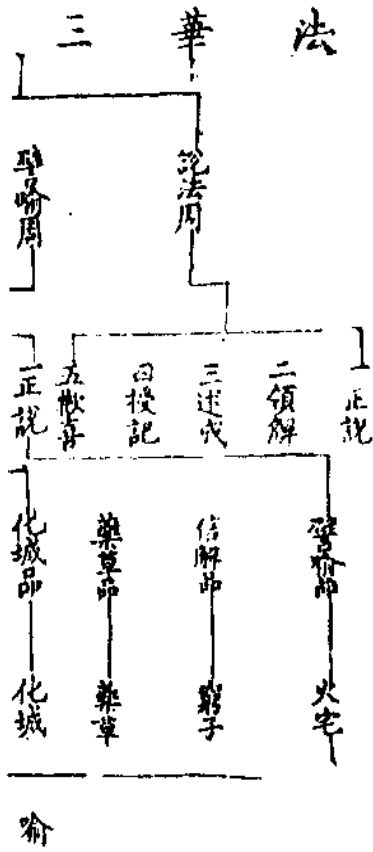 法華三
說法周
譬喻周
正說
二領解
三述成
四授記
五歡喜
一正說
譬喻品
信解品
藥草品
化城品
火宅
窮子
藥草
化城
喻